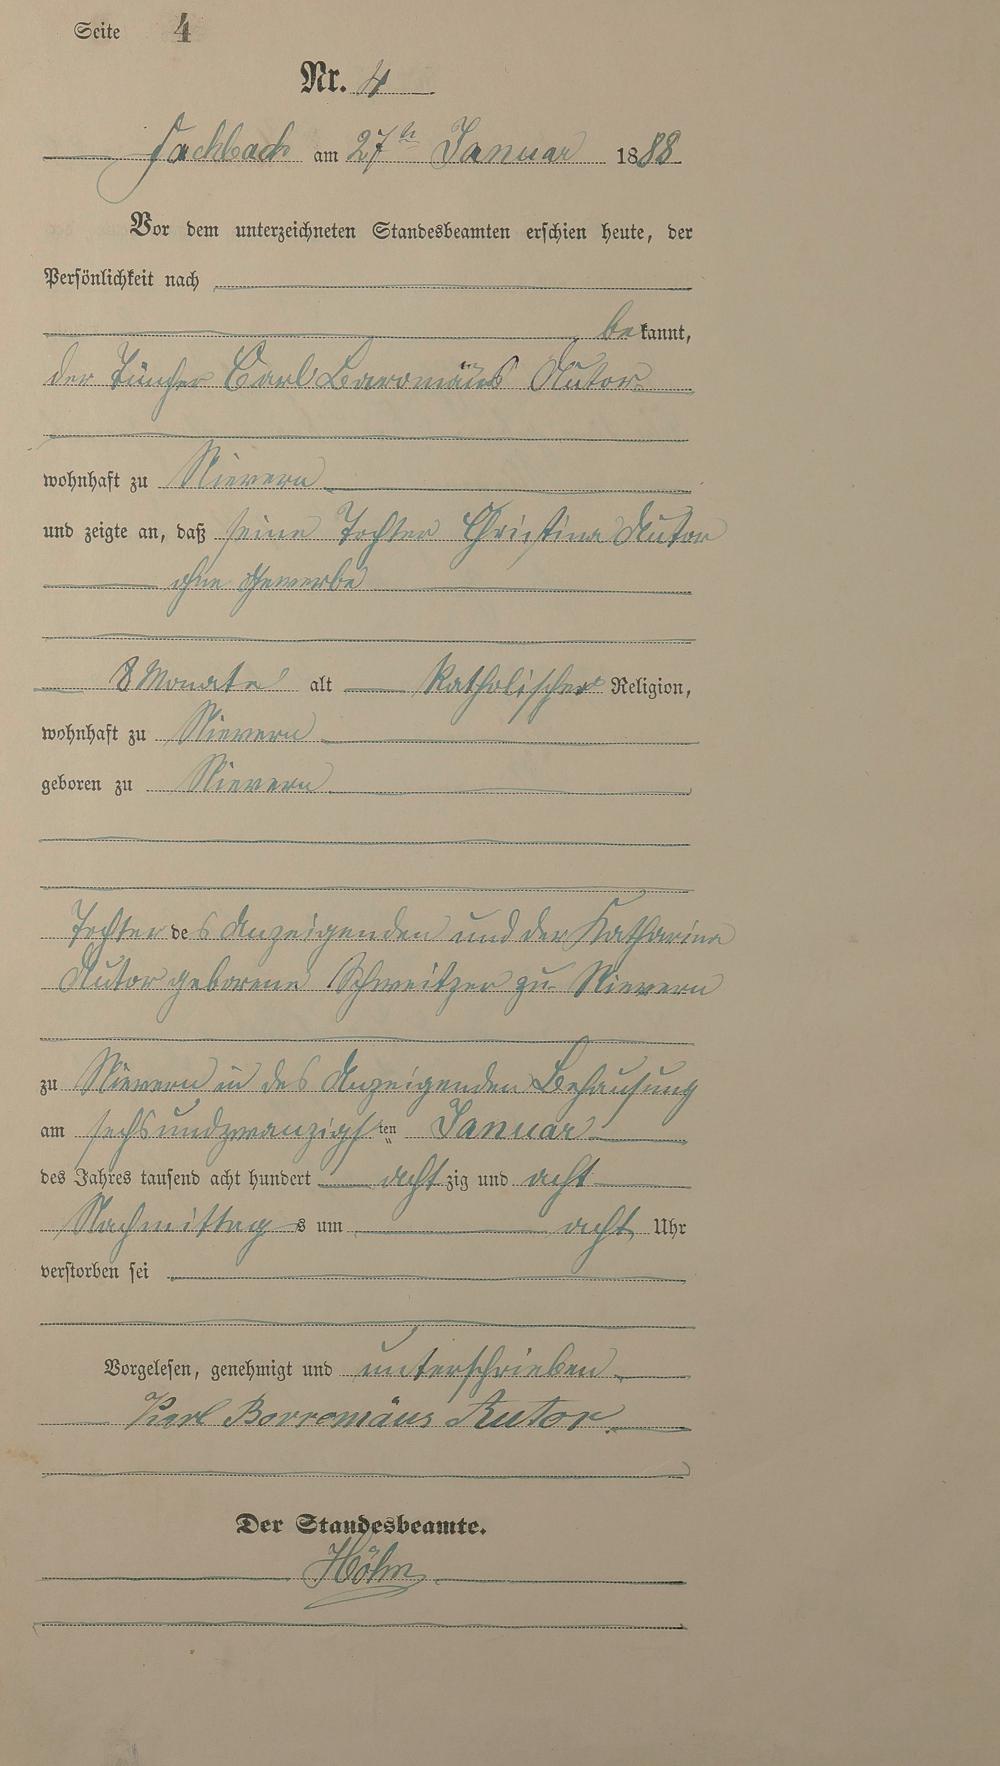 Seite 4
Nr. 4
Fachbach am 27ten Januar 1888
Vor dem unterzeichneten Standesbeamten erschien heute, der
Persönlichkeit nach
bekannt,
der Tüncher Carl Baromäus Autor
wohnhaft zu Nievern
und zeigte an, daß seine Tochter Christina Autor
ohne Gewerbe
8 Monate alt katholischer Religion,
wohnhaft zu Nievern
geboren zu Nievern
Tochter des Anzeigenden und der Katharina
Autor geborene Schweitzer zu Nievern
zu Nievern in des Anzeigenden Behausung
am sechsundzwanzigsten Januar
des Jahres tausend acht hundert achtzig und acht
Nachmittags um acht Uhr
verstorben sei
Vorgelesen, genehmigt und unterschrieben
Karl Borromäus Autor.
Der Standesbeamte.
Höhn